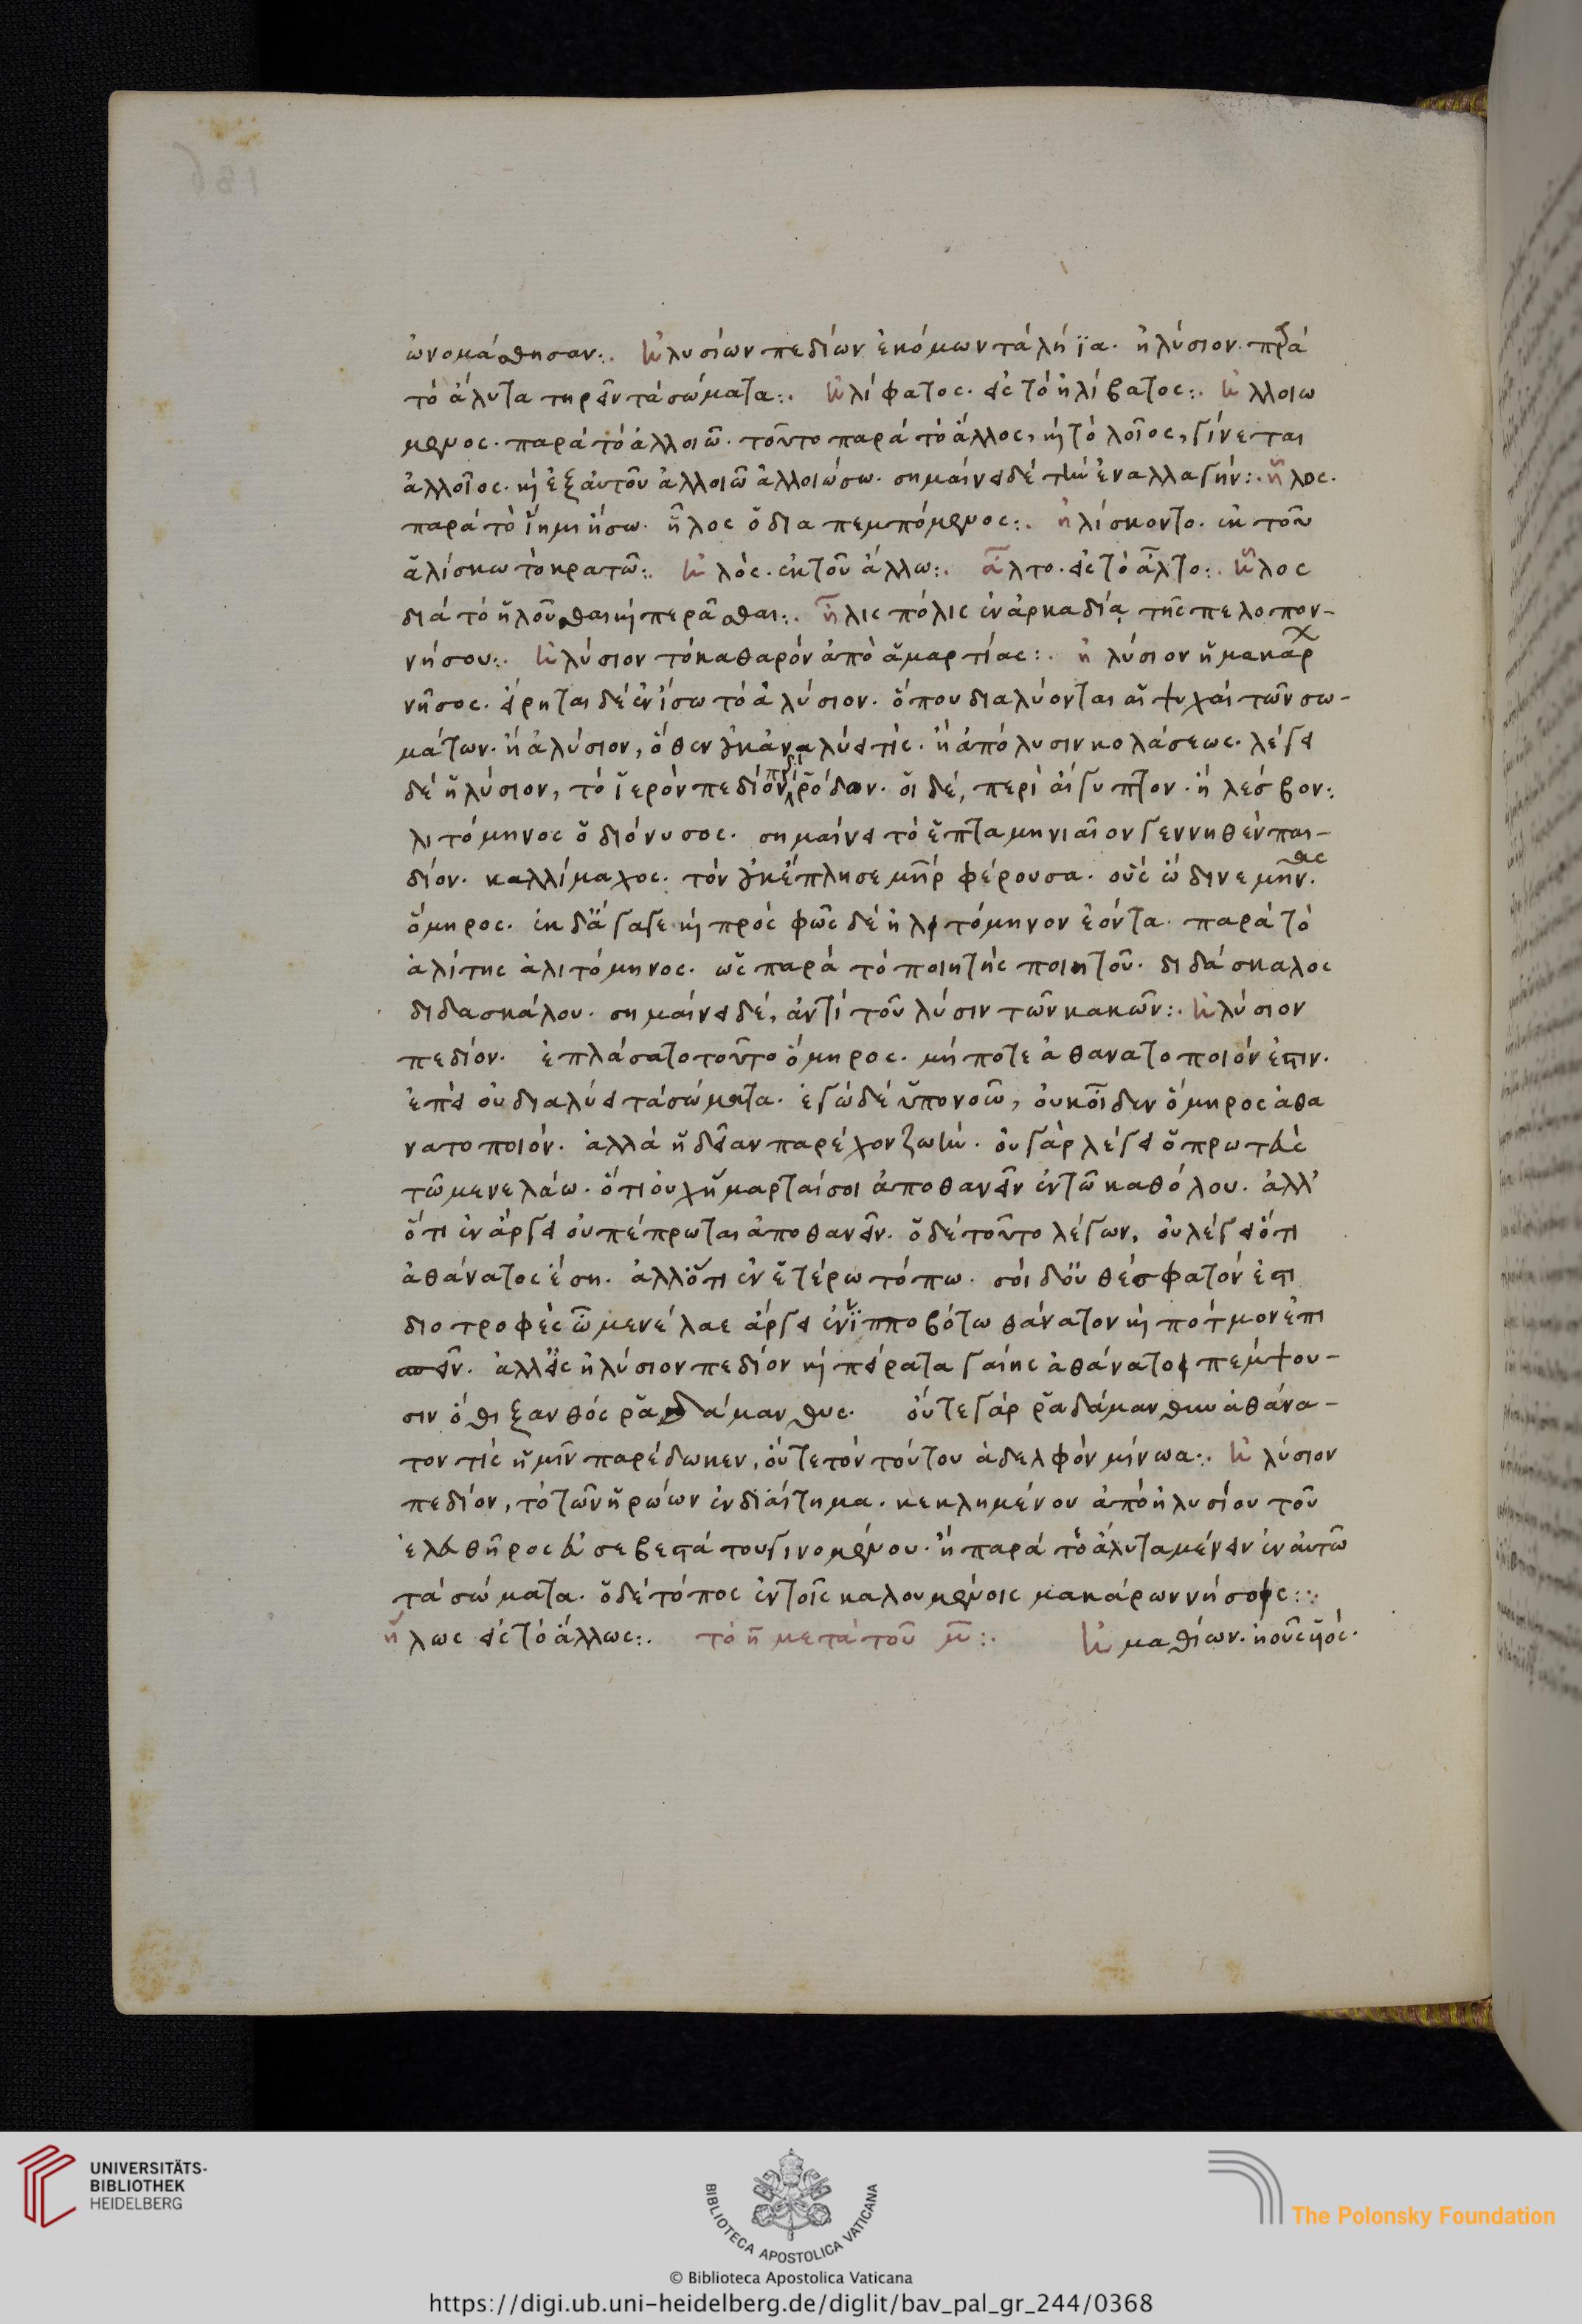 ὠνομάσθησαν:. ἠλυσίων πεδίων ἐκόμων τὰ λήϊα. ἠλύσιον. πρὰ
τὸ ἄλυτα τηρεῖν τὰ σώματα:. ἠλίφατος. εἰς τὸ ἠλίβατος:. ἠλλοιω
μενος. παρὰ τὸ ἀλλοιῶ. τοῦτο παρὰ τὸ ἄλλος, καὶ τὸ λοῖος, γίνεται
ἀλλοῖος. καὶ ἐξ αὐτοῦ ἀλλοιῶ ἀλλοιώσω. σημαίνει δὲ τὴν ἐναλλαγήν:. ἧλος.
παρὰ τὸ ἵημι ἥσω. ἧλος ὁ διαπεμπόμενος:. ἡλίσκοντο. ἐκ τοῦ
ἁλίσκω τὸ κρατῶ:. ἠλός. ἐκ τοῦ ἄλλω:. ἆλτο. εἰς τὸ ἆλτο:. ἧλος
διὰ τὸ ἡλοῦσθαι καὶ περᾶσθαι:. ἦλις πόλις ἐν ἀρκαδίᾳ τῆς πελοπον-
νήσου:. ἠλύσιον τὸ καθαρὸν ἀπὸ ἁμαρτίας:. ἠλύσιον ἡ μακάρ
νῆσος. εἴρηται δὲ ἐν ἴσω τὸ ἀλύσιον. ὅπου διαλύονται αἱ ψυχαὶ τῶν σω-
μάτων. ἢ ἀλύσιον, ὅθεν οὐκ ἀναλύει τίς. ἢ ἀπόλυσιν κολάσεως. λέγει
δὲ ἠλύσιον, τὸ ἱερὸν πεδίον περὶ ῥόδον. οἱ δὲ, περὶ αἴγυπτον. ἢ λέσβον:.
λιτόμηνος ὁ διόνυσος. σημαίνει τὸ ἑπταμηνιαῖον γεννηθὲν παι-
δίον. καλλίμαχος. τὸν οὐκ ἔπλησε μηρ φέρουσα. οὐδ ὤδινε μῆνας.
ὅμηρος. ἐκ δ' ἄγαγε καὶ πρὸς φῶς δὲ ἠλιτόμηνον ἐόντα. παρὰ τὸ
ἀλίτης ἀλιτόμηνος. ὡς παρὰ τὸ ποιητὴς ποιητοῦ. διδάσκαλος
διδασκάλου. σημαίνει δὲ, ἀντὶ τοῦ λύσιν τῶν κακῶν:. ἠλύσιον
πεδίον. ἐπλάσατο τοῦτο ὅμηρος. μήποτε ἀθανατοποιόν ἐστιν.
ἐπεὶ οὐ διαλύει τὰ σώματα. ἐγὼ δὲ ὑπονοῶ, οὐκ οἶδεν ὅμηρος ἀθα
νατοποιόν. ἀλλὰ ἡδεῖαν παρέχον ζωήν. οὐ γὰρ λέγει ὁ πρωτεὺς
τῶ μενελάω. ὅτι οὐχ ἥμαρταί σοι ἀποθανεῖν ἐν τῶ καθόλου. ἀλλ'
ὅτι ἐν ἄργει οὐ πέπρωται ἀποθανεῖν. ὁ δὲ τοῦτο λέγων, οὐ λέγει ὅτι
ἀθάνατος ἔση. ἀλλ' ὅτι ἐν ἑτέρω τόπω. σοὶ δ' οὐ θέσφατόν ἐστι
διοτροφὲς ὦ μενέλαε ἄργει ἐν ἱπποβότω θάνατον καὶ πότμον ἐπι
σπεῖν. ἀλλ' εἰς ἠλύσιον πεδίον καὶ πείρατα γαίης ἀθάνατοι πέμψου-
σιν ὅθι ξανθὸς ῥαδάμανθυς. οὔτε γὰρ ῥαδάμανθυν ἀθάνα-
τον τὶς ἡμῖν παρέδωκεν, οὔτε τὸν τούτου ἀδελφὸν μίνωα:. ἠλύσιον
πεδίον, τὸ τῶν ἡρώων ἐνδιαίτημα. κεκλημένον ἀπὸ ἠλυσίου τοῦ
ἐλευθῆρος εὐσεβεστάτου γινομένου. ἢ παρὰ τὸ ἄλυτα μένειν ἐν αὐτῶ
τὰ σώματα. ὁ δὲ τόπος ἐν τοῖς καλουμένοις μακάρων νήσοις:.
ἤλως εἰς τὸ ἄλλως:. τὸ η μετὰ τοῦ μ:. ἠμαθίων.